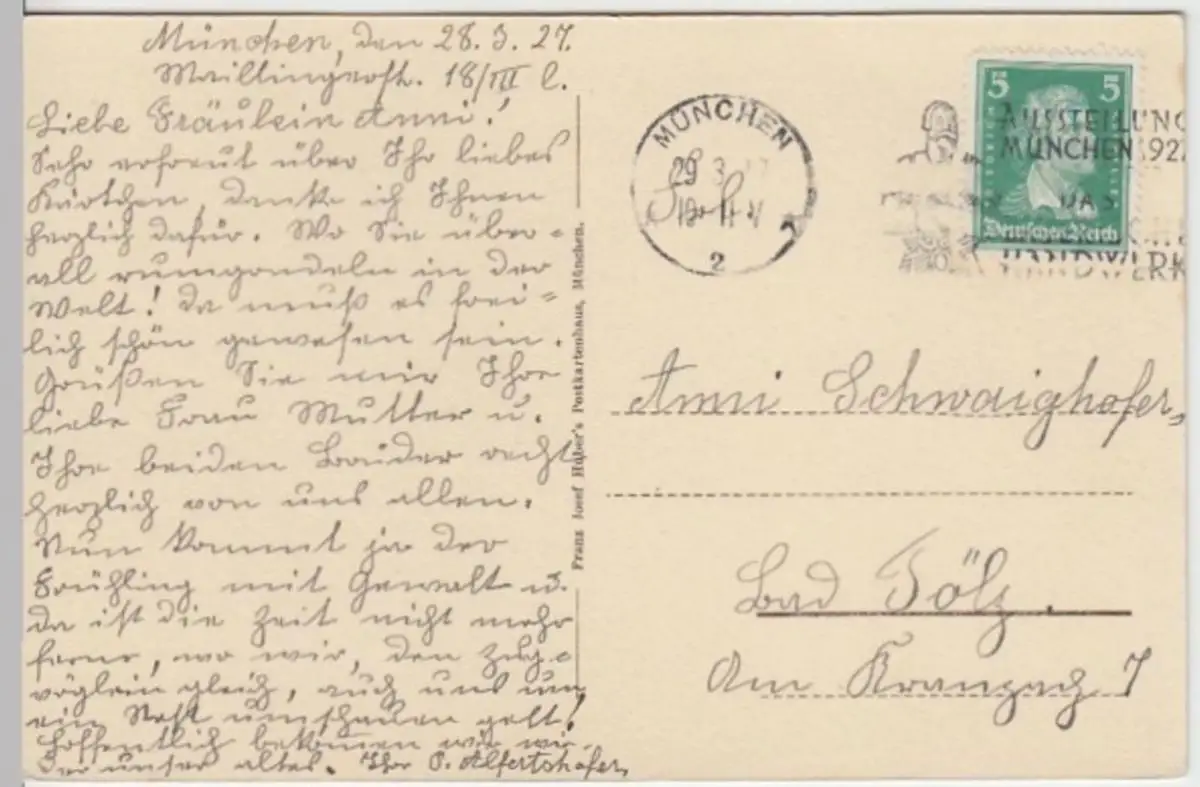 München, den 28.3.27.
Maillingerstr. 18/III l.
Liebe Fräulein Anni!
Sehr erfreut über Ihr liebes
Kärtchen, danke ich Ihnen
herzlich dafür. Wo Sie über-
all rumgondeln in der
Welt! Da muß es frei-
lich schön gewesen sein.
Grüßen Sie mir Ihre
liebe Frau Mutter u.
Ihre beiden Brüder recht
herzlich von uns allen.
Nun kommt ja der
Frühling mit Gewalt u.
da ist die Zeit nicht mehr
ferne, wo wir, den Zug-
vöglein gleich, auch uns um
ein Nest umschauen gelt!
Hoffentlich bekommen wir wie-
der unser altes. Ihr P. Alfertshofer,
Franz Josef Huber's Postkartenhaus, München.
MÜNCHEN
29 3
2
AUSSTELLUNG
MÜNCHEN 1927
DAS
HANDWERK
5 5
Deutsches Reich
Anni Schwaighofer,
Bad Tölz.
Am Kranzach 7